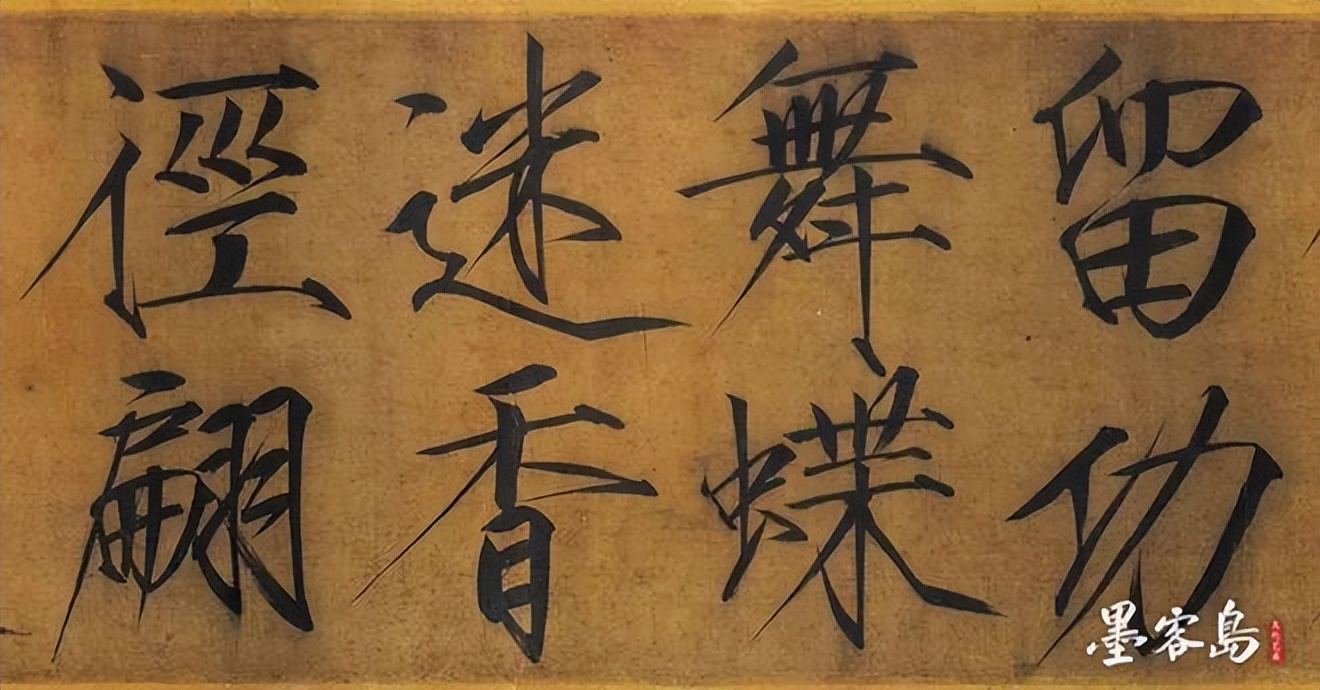 留功
舞蝶
迷香
徑翩
墨客島